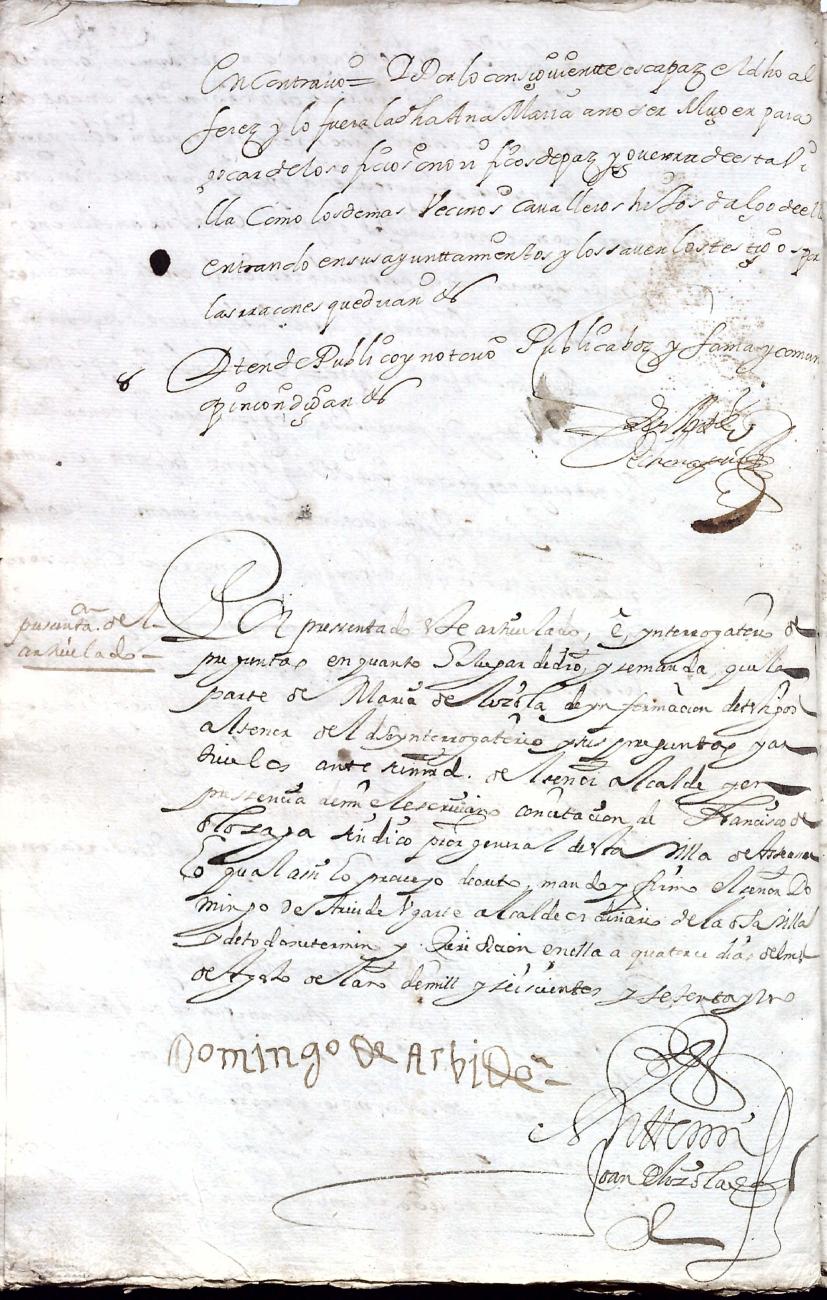 En Contrario = Y Por lo consiguiente es capaz el dho al
ferez y lo fuera la dha Ana Maria a no ser Muger para
gocar de los oficios onorificos de paz y guerra de esta Vi
lla Como los demas Vecinos cavalleros hijos dalgo de ella
entrando en sus ayunttamentos y lo saven los testigos por
las rracones que diran &
8 Yten de Publico y notorio Publica boz y fama y comun
opinion diran &
presenta.on del
articulado
Por pressentado este articulado, e, ynterrogaterio de
preguntas en quanto a lugar de dro, y se manda que la
parte de Maria de Loçola de ynformacion de testigos
al tenor del dho ynterrogaterio y sus preguntas y ar
ticulos ante su md. del señor alcalde y en
pressencia de mi el escrivano con citacion de Francisco de
Olozaga sindico pror general desta villa de
Lo qual assi lo proveyo decreto, mando y firmo el señor Do
mingo de Arvide Ygarte alcalde ordinario de la dha villa
y de todo su termino y Juridicion en ella a quatorce dias del mes
de Agosto del año de mill y seiscientos y sesenta y
Domingo de Arbide
Antte mi
Joan de Loçola